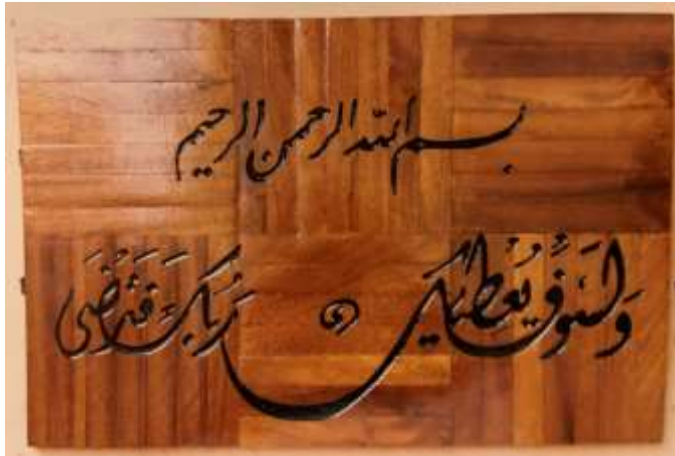 بسم الله الرحمن الرحيم
وَلَسَوْفَ يُعْطِيكَ رَبُّكَ فَتَرْضَى